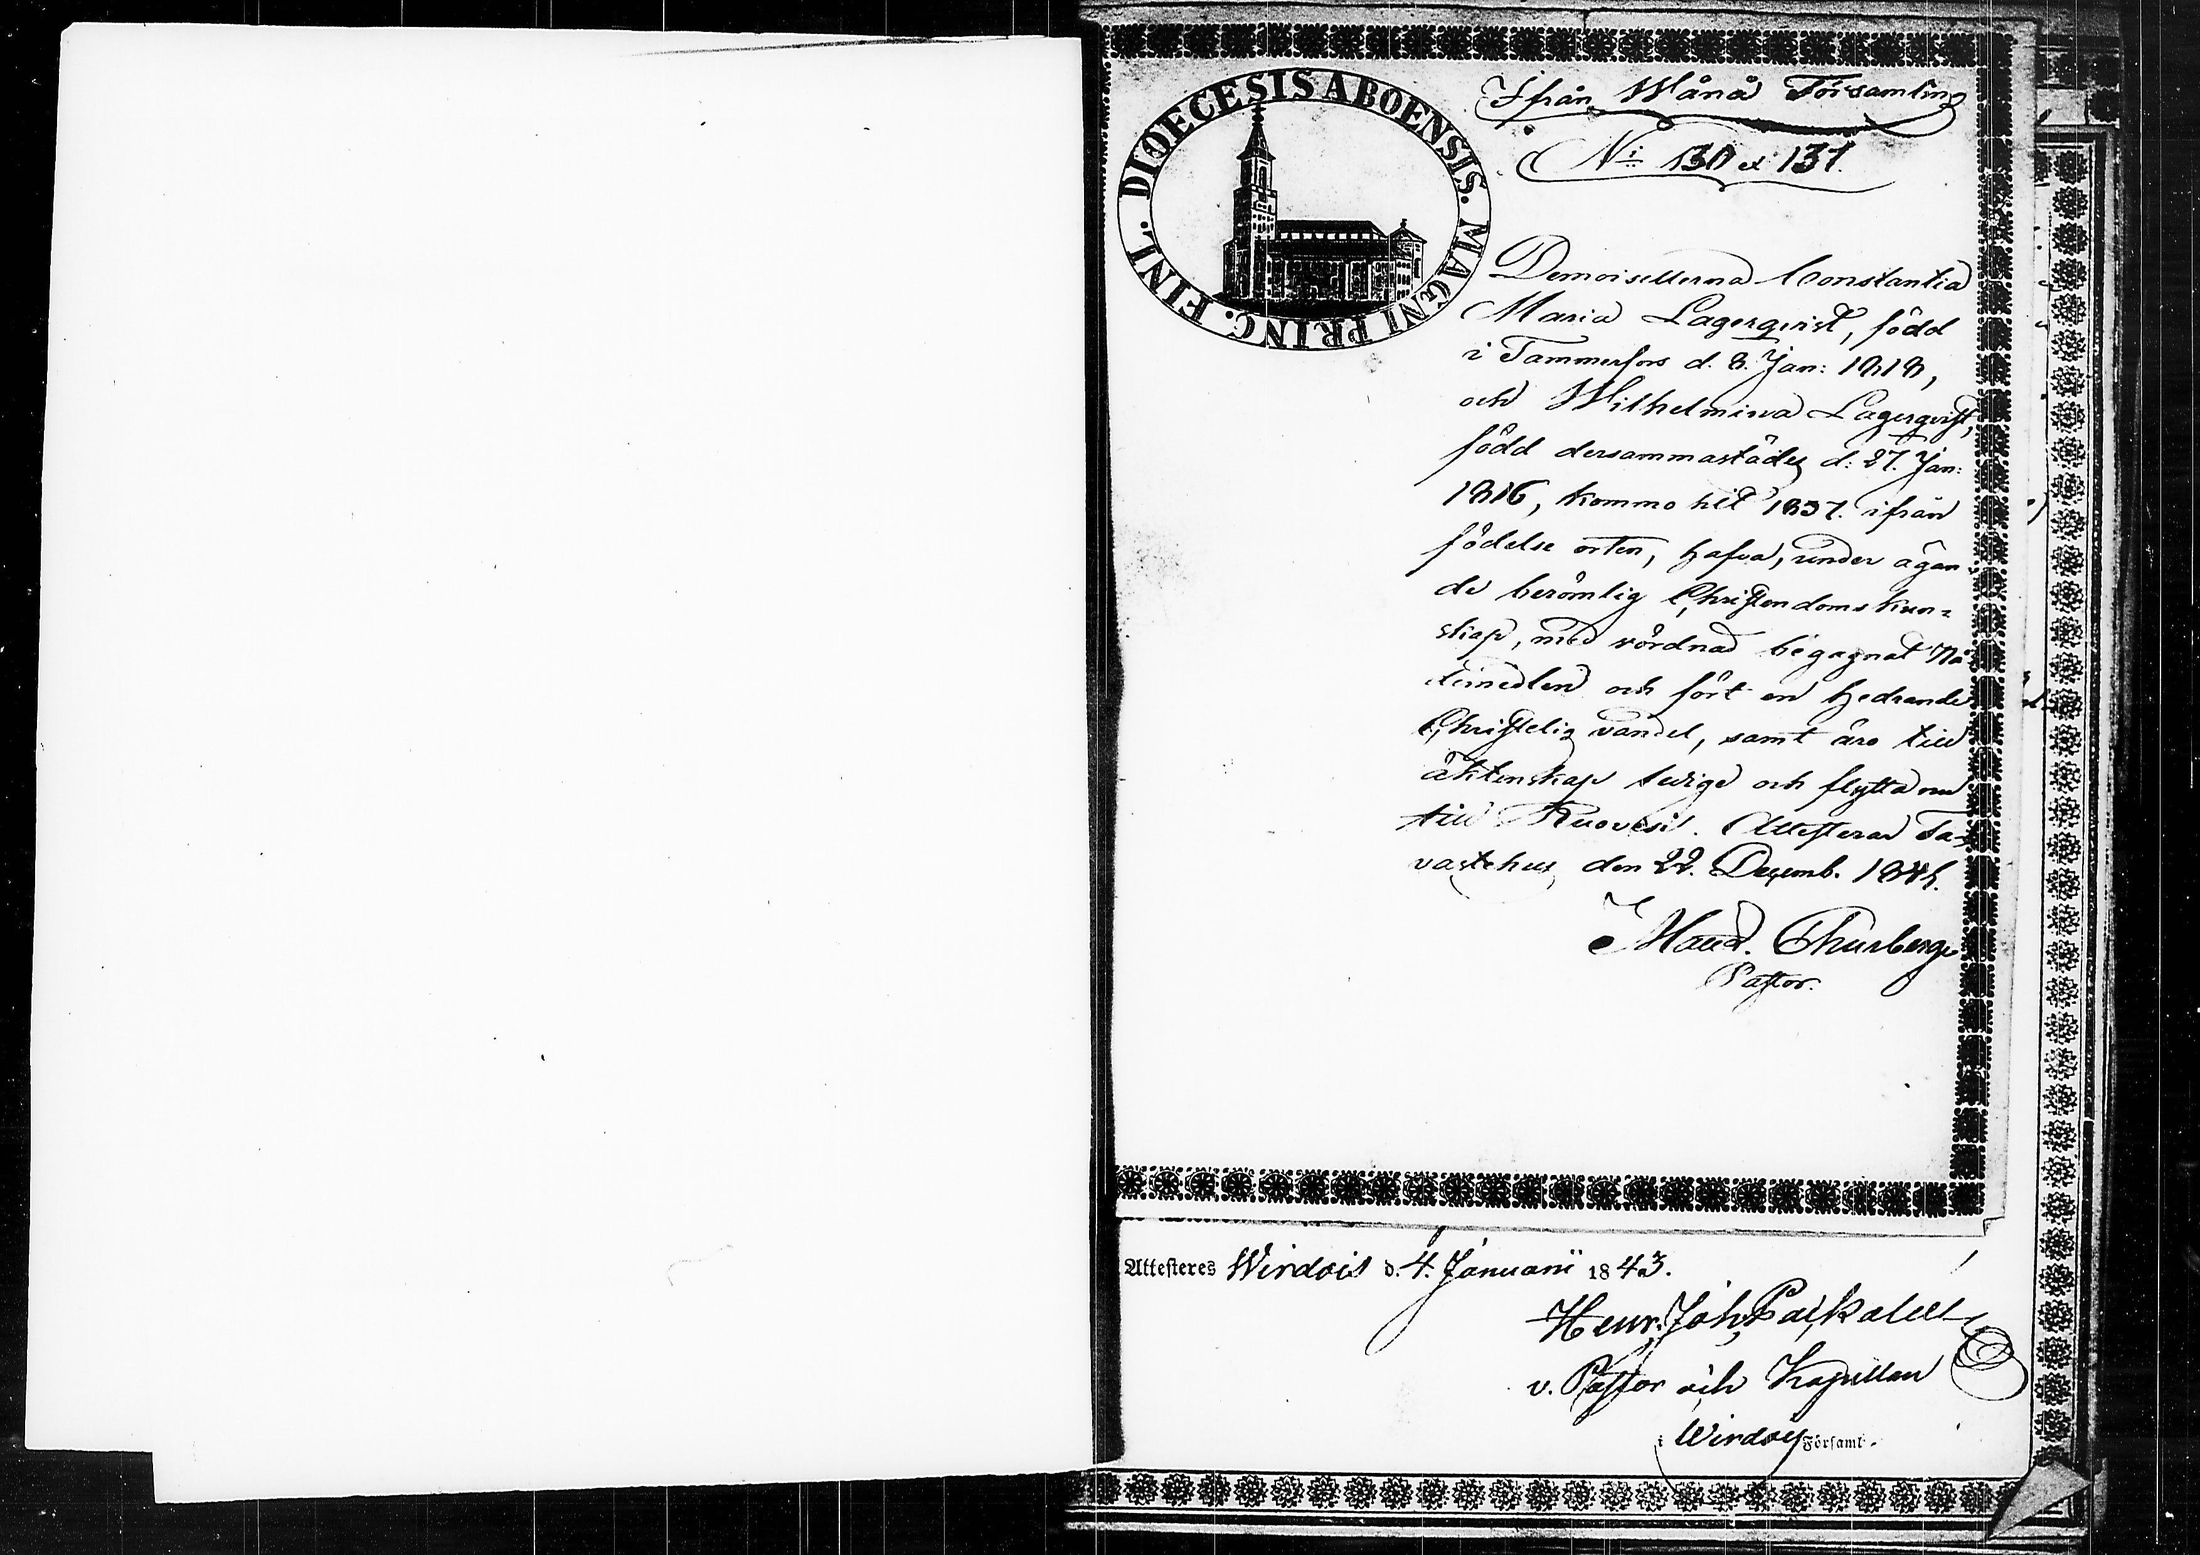 DIOECESIS ABOENSIS. MAGNI PRINC. FINL.
Ifrån Wånå Församling
N:i 130 et 131.
Demoisellerna Constantia
Maria Lagerqvist, född
i Tammerfors d. 8. Jan: 1818,
och Wilhelmina Lagerqvist,
född dersammastädes d: 27. Jan:
1816, kommo hit 1837. ifrån
födelse orten, hafva, under ägan-
de berömlig Christendoms kun-
skap, med vördnad begagnat Nå-
demedlen och fört en hedrande
Christelig vandel, samt äro till
äktenskap ledige och flytta nu
till Ruovesi. Attesterar Ta-
vastehus den 22. Decemb. 184
Thurberg
Pastor.
Attesteres Wirdois d. 4. Januarii 1843.
Henr. Joh.
v. Pastor och Kapellan
i Wirdois Församl.